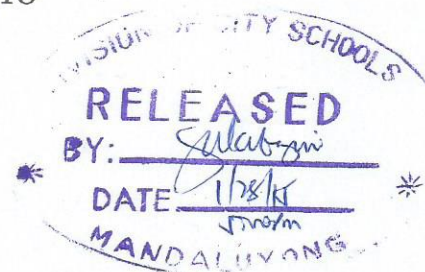 DIVISION OF CITY SCHOOLS
RELEASED
BY:
DATE 1/28/15
MANDALUYONG